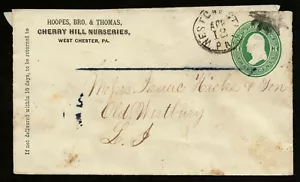 HOOPES, BRO. & THOMAS,
CHERRY HILL NURSERIES,
WEST CHESTER, PA.
If not delivered within 10 days, to be returned to
WEST CHESTER
PA.
Messrs Isaac Hicks & Son
Old Westbury
L. I